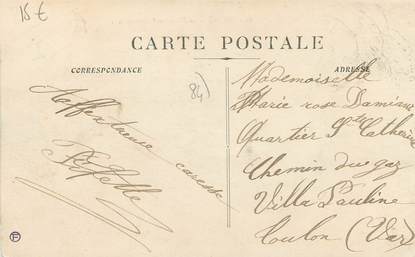 15€
CARTE POSTALE
CORRESPONDANCE
ADRESSE
84)
caresse
Mademoiselle
Marie rose Damiane
Quartier Ste Catherine
Chemin du gaz
Villa Pauline
Toulon (Var)
F